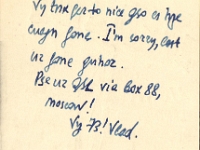 Vy tnx for to nice qso es hpe
cuagn fone. I'm sorry, lost
ur fone
Pse ur QSL via box 88,
moscow!
Vy 73! Vlad.